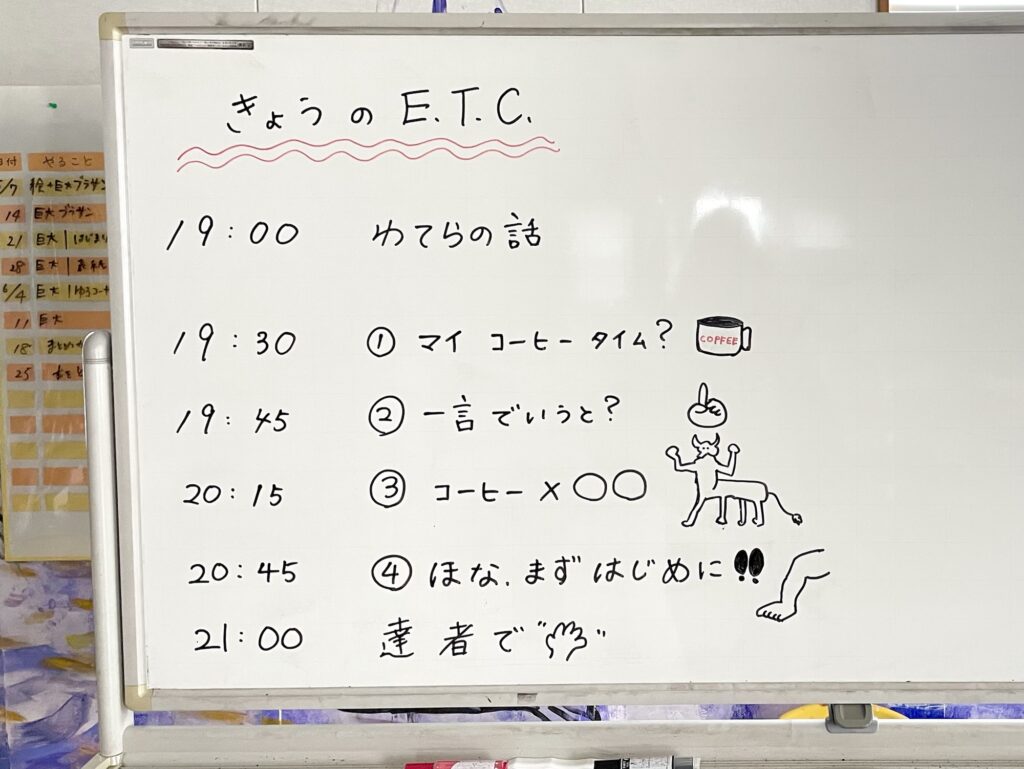 きょうの E.T.C.
19:00 わてらの話
19:30 ① マイ コーヒータイム?
COFFEE
19:45 ② 一言でいうと?
20:15 ③ コーヒー×〇〇
20:45 ④ ほな、まずはじめに
21:00 達者で
やること
14 巨大ブラサン
21 巨大
28 巨大
6/4 巨大
11 巨大
18 まとめ
25